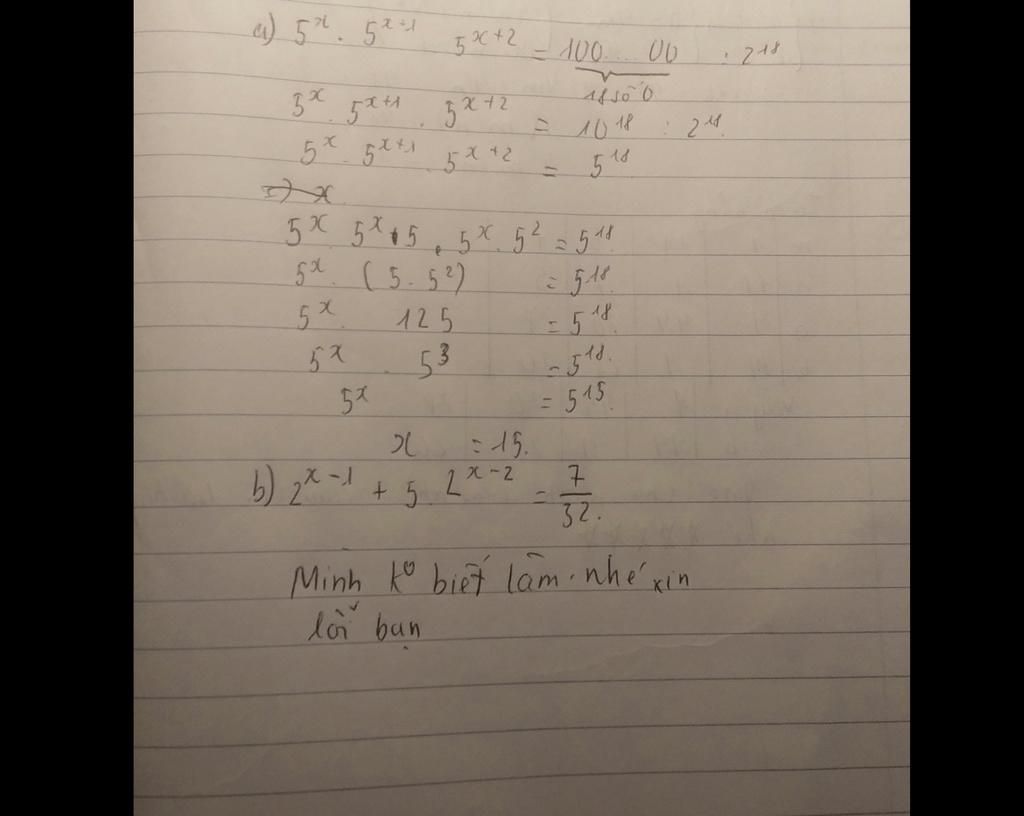 a) 5^x . 5^{x+1} 5^{x+2} = 100...00 : 2^{18}
18 số 0
5^x . 5^{x+1} . 5^{x+2} = 10^{18} : 2^{18}.
5^x . 5^{x+1} . 5^{x+2} = 5^{18}
=> x
5^x . 5^x . 5 . 5^x . 5^2 = 5^{18}
5^x . (5 . 5^2) = 5^{18}.
5^x . 125 = 5^{18}.
5^x . 5^3 = 5^{18}.
5^x = 5^{15}.
x = 15.
b) 2^{x-1} + 5 . 2^{x-2} = 7/32.
Mình ko biết làm. nhé xin
lỗi bạn